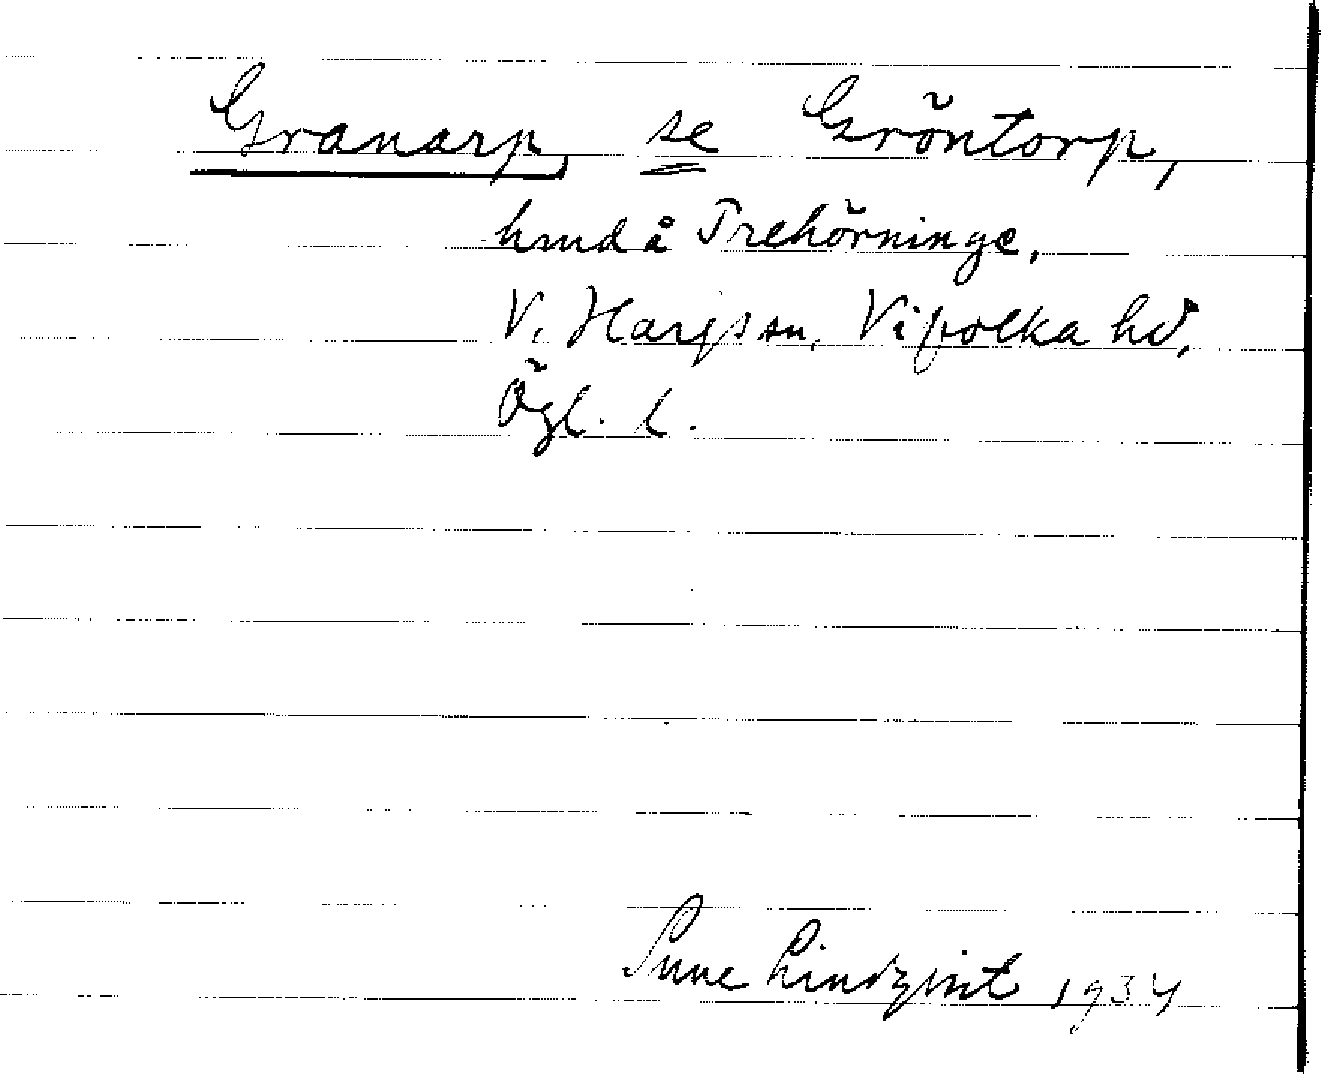 Granarp, se Gröntorp,
hmd å Trehörninge,
V. Hargs sn, Vifolka hd,
Ögl. l.
Sune Lindqvist 1934